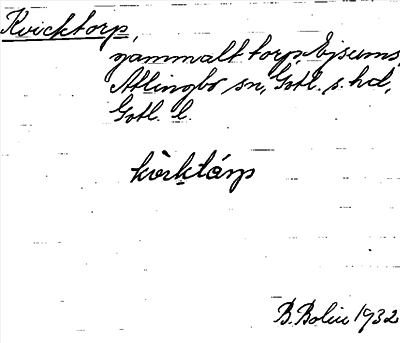 Kvicktorp,
gammalt torp, Ejsums,
Atlingbo sn, Gotl. s. hd,
Gotl. l.
kòrktárp
B. Bolin 1932